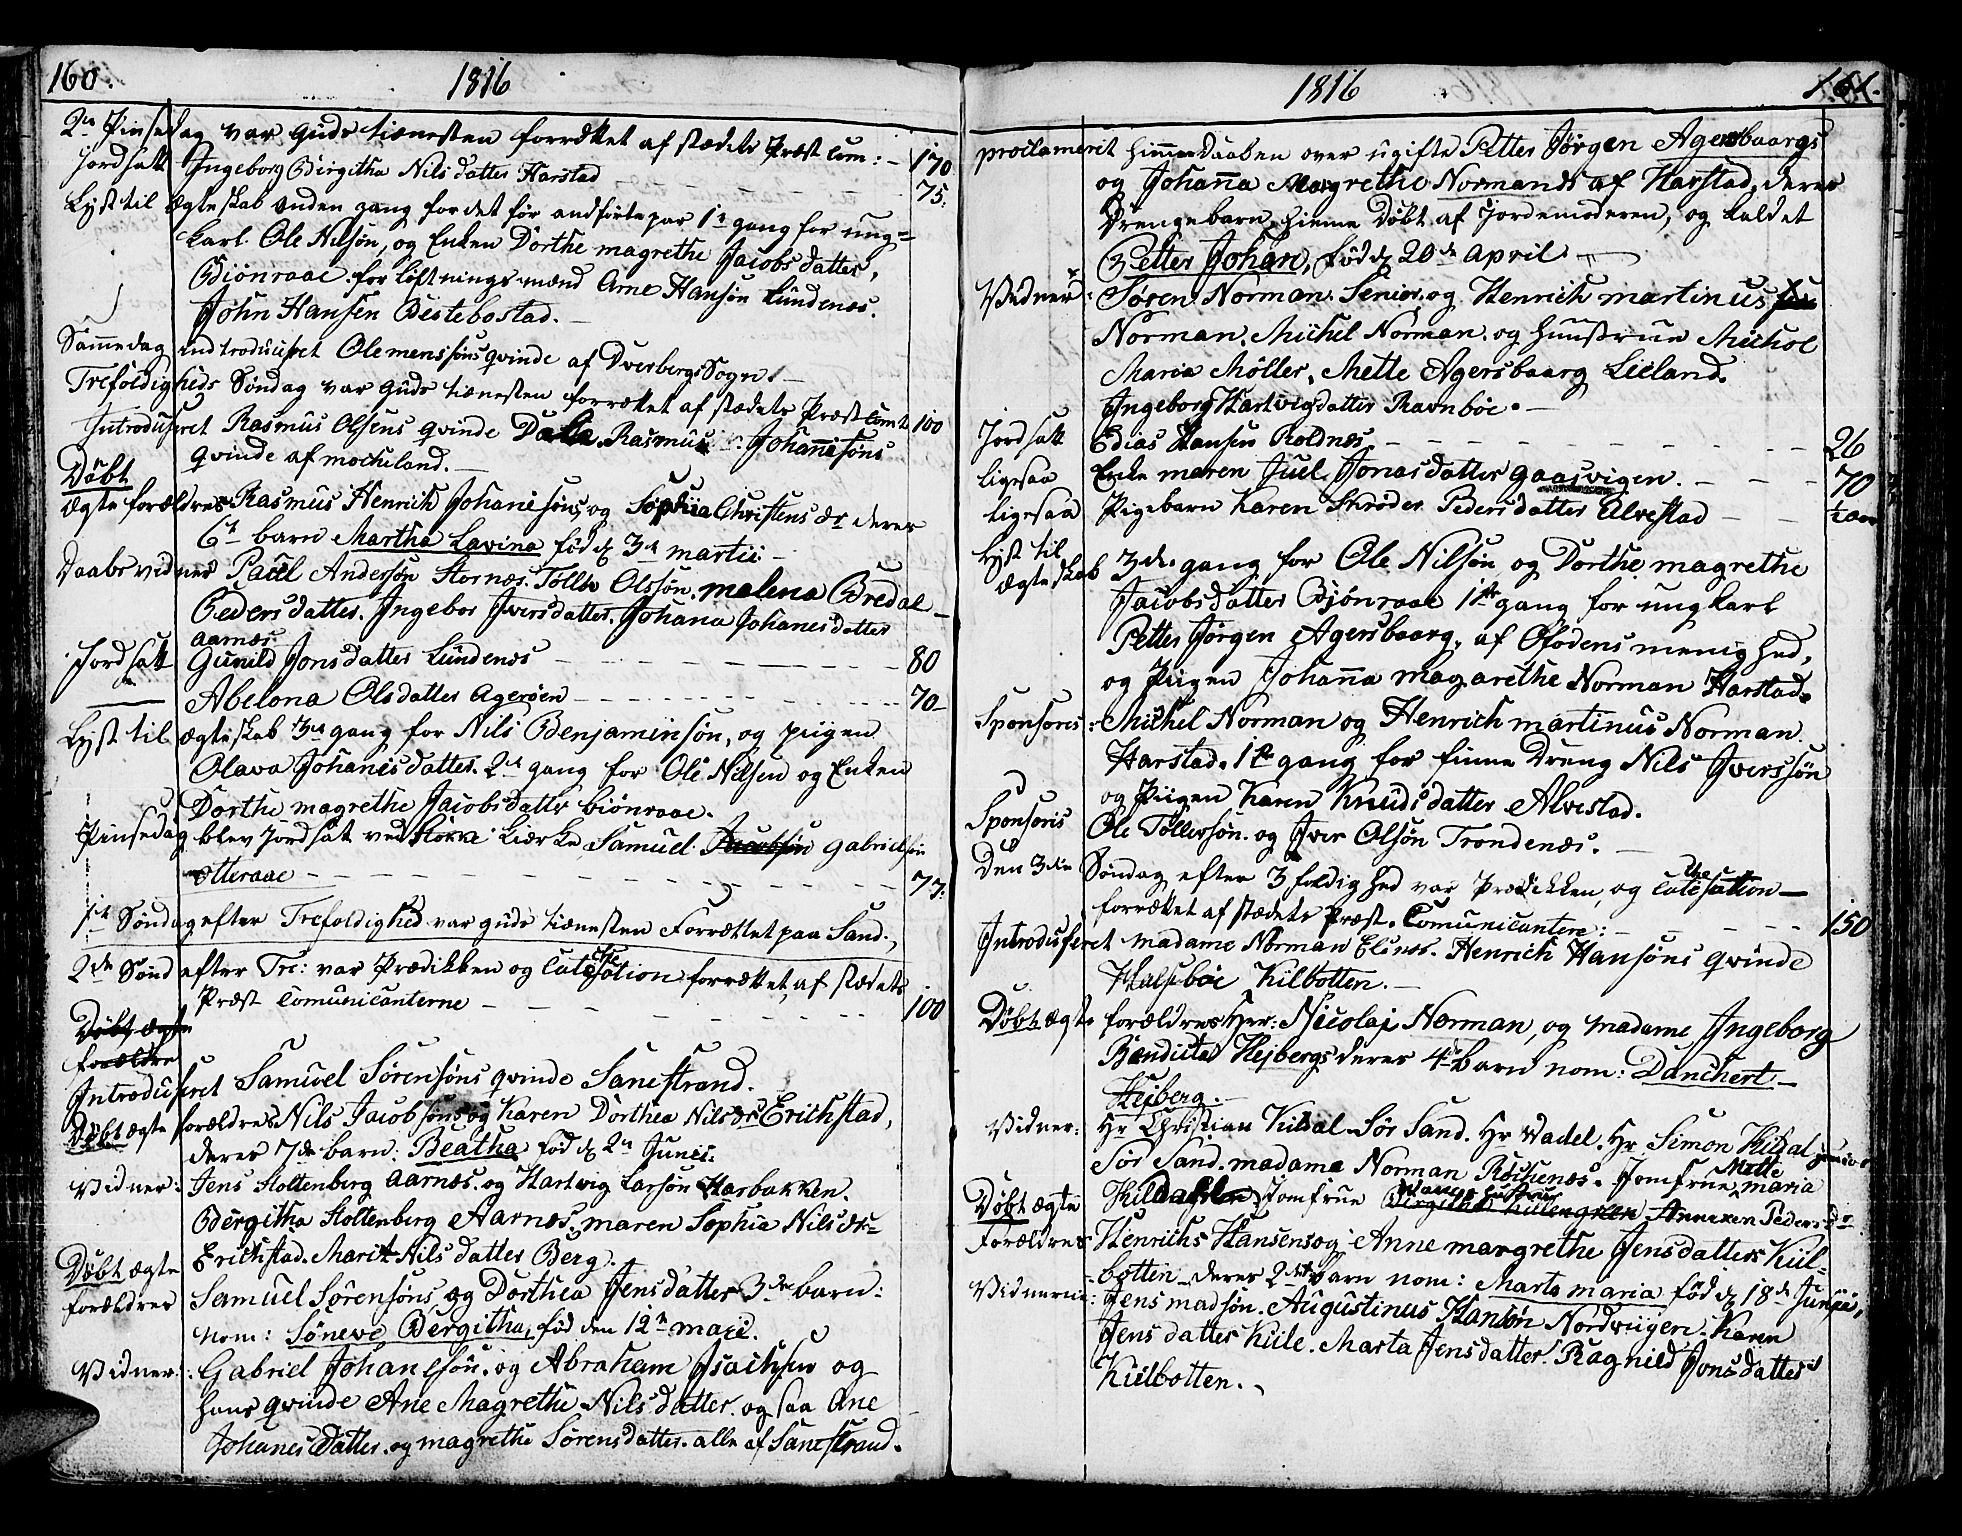 160.
1816
2n Pinsedag var Guds tienesten forrettet af stædets Præst Com: 170
Jordsatt Ingeborg Birgitha Nils datter Harstad 75.
Lyst til Ægteskab anden gang for det før anførte par 1te gang for ung=
karl Ole Nilsøn, og Enken Dorthe magrethe Jacobs datter,
Biönraae. for løftnings mænd Arne Hansøn Lundenæs.
John Hansen Bestebostad.
Samedag introduceret Ole menssøns qvinde af Dverbergs Sogn.
Trefoldigheds Søndag var Guds tienesten forrettet af stædets Præst Comt 100
Introduseret Rasmus Olsens qvinde Rasmus Johannisøns
qvinde af mocheland.
Døbt
ægte forældres Rasmus Henrich Johanisøns og Sophia Christens dr deres
6t barn Martha Lavina fød d 3de martii
Daabs vidner Paul Andersøn Stornæs. Tolle Olsøn. malena Bredal
Peders datter. Ingebor Ivers datter. Johana Johanes datter
Aarnæs.
Jordsatt Gunild Jons datter Lundenæs 80
Abelona Ols datter Agerøen 70
Lyst til ægteskab 3de gang for Nils Benjaminsøn, og piigen
Olava Johanis datter. 2de gang for Ole Nilsen og Enken
Dorthe magrethe Jacobs datter Biönraae.
Pinsedag blev Jordsat ved Kierke Samuel Gabrielsøn
otteraae 77.
1te Søndag efter Trefoldighed var guds tienesten Forrettet paa Sand.
2de Sønd efter Tre: var Prædikken og Catechesation forrettet af stædets
Præst Comunicanterne 100
Døbt ægte
forældre
Introduseret Samuel Sørensøns qvinde Sanestrand.
Døbt ægte forældres Nils Jacobsøns og Karen Dorthea Nils dr Erichstad,
deres 7de barn: Beatha fød d 2n Junii.
Vidner: Jens Stoltenberg Aarnæs. og Hartvig Larsøn Harbakken.
Bergitha Stoltenberg Aarnæs. maren Sophia Nils dr
Erichstad. Marit Nils datter Berg.
Døbt ægte
forældres Samuel Sørensøns, og Dorthea Jens datter 3de barn:
nom: Sönewe Bergitha, fød den 12n maji.
Vidner: Gabriel Johanesøn. og Abraham Isachsen og
hans qvinde Ane Magrethe Nils datter. og saa Ane
Johanes datter. og magrethe Sørens datter. alle af Sanestrand.
1816
161.
proclamerit himmedaaben over ugifte Petter Jørgen Agersbaargs
og Johanna Margrethe Normands af Harstad, deres
Drengebarn, hieme døbt af Jordemoderen, og kaldet
Petter Johan, fød d 20de April.
Vidner: Søren Norman Senior. og Henrich martinus
Norman. Michel Norman. og hustrue Michol
Maria Möller. Mette Agersbaarg Lieland.
Ingeborg Hartvigdatter Ravnbøe.
Jordsatt Edias Hansen Roldnæs. 26
ligesaa Enke maren Juel Jonas datter gaasvigen. 70
Ligesaa Pigebarn Karen Skrøder Peders datter Alvestad ½ aar
Lyst til
ægteskab 3die gang for Ole Nilsøn og Dorthe magrethe
Jacobs datter Bjönraae 1ste gang for ungkarl
Petter Jørgen Agersbaarg. af Ofodens menighed,
og Piigen Johanna magarethe Norman Harstad.
Sponsoris: Michel Norman og Henrich martinus Norman
Harstad. 1te gang for finne Dreng Nils Iverssøn
og Piigen Karen Knuds datter Alvestad.
Sponsoris Ole Tollersøn. og Iver Olsøn Trondenæs.
Den 3die Søndag efter 3foldighed var Prædikken, og Catechesation
forrettet af stædets Præst. Comunicantere: 150
Introduseret madame Norman Elines. Henrich Hansøns qvinde
Halsebøe Kilbotten.
Døbt ægte forældres Hrr: Nicolaj Norman, og madame Ingeborg
Bendicta Hejbergs deres 4de barn nom: Danchert
Hejberg.
Vidner: Hr Christian Kildal Sør Sand. Hr Wadel. Hr Simon Kildal junior
Sør Sand. madama Norman Röchenæs. Jomfrue Mette maria
Kildal Jomfrue Anneken Peders dr
Døbt ægte
Forældres Henrichs Hansens og Anne margrethe Jens datters Kiil=
botten deres 2det barn nom: Marta maria fød d 18de Junii,
Vidnerne: Jens madsøn. Augustinus Hansøn Nordviigen. Karen
Jens datter Kiile. Marta Jens datter. Ragnild Jons datter
Kiilbotten.